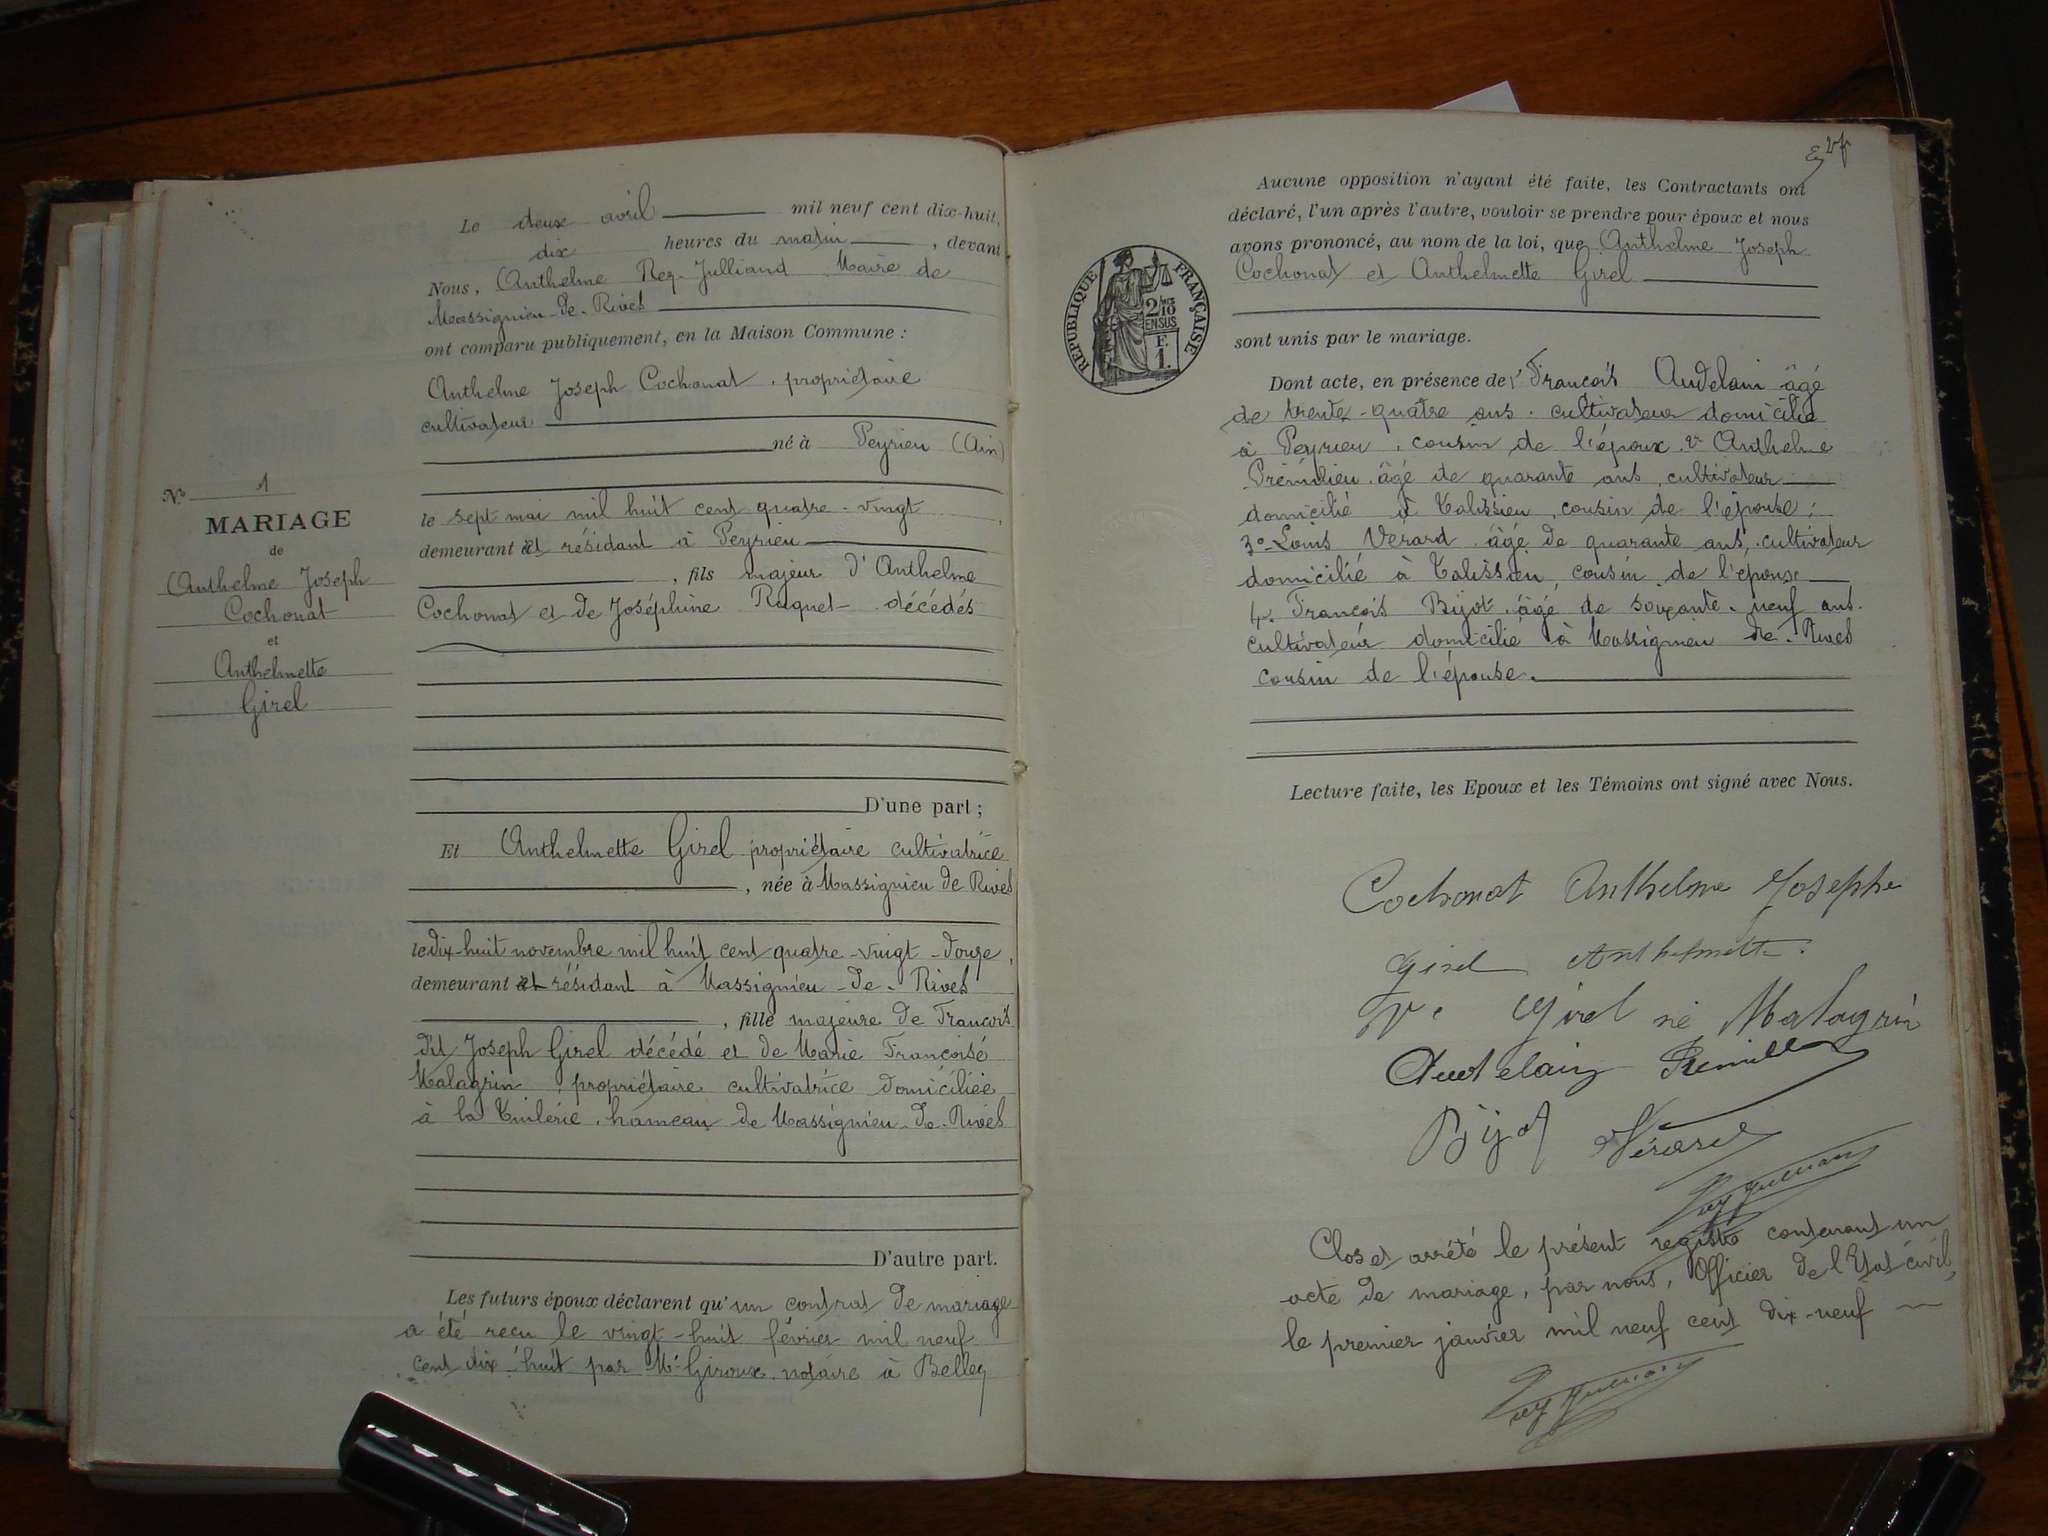 Le deux avril mil neuf cent dix-huit,
dix heures du matin, devant
Nous, Anthelme Rey-Julliand Maire de
Massignieu-de-Rives
ont comparu publiquement, en la Maison Commune :
Anthelme Joseph Cochonat, propriétaire
cultivateur
né à Peyrieu (Ain)
le sept mai mil huit cent quatre-vingt
demeurant et résidant à Peyrieu
, fils majeur d'Anthelme
Cochonat et de Joséphine Ruquet décédés
N° 1
MARIAGE
de
Anthelme Joseph
Cochonat
et
Anthelmette
Girel
D'une part ;
Et Anthelmette Girel propriétaire cultivatrice
, née à Massignieu de Rives
le dix-huit novembre mil huit cent quatre-vingt-douze,
demeurant et résidant à Massignieu-de-Rives
, fille majeure de François
dit Joseph Girel décédé et de Marie Françoise
Malagrin, propriétaire cultivatrice domiciliée
à la Tuilerie, hameau de Massignieu-de-Rives
D'autre part.
Les futurs époux déclarent qu'un contrat de mariage
a été reçu le vingt-huit février mil neuf
cent dix-huit par Me Giroux notaire à Belley
Aucune opposition n'ayant été faite, les Contractants ont
déclaré, l'un après l'autre, vouloir se prendre pour époux et nous
avons prononcé, au nom de la loi, que Anthelme Joseph
Cochonat et Anthelmette Girel
sont unis par le mariage.
REPUBLIQUE FRANÇAISE
2/10
EN SUS
F.
1.
Dont acte, en présence de 1° François Audelain âgé
de trente-quatre ans, cultivateur domicilié
à Peyrieu, cousin de l'époux, 2° Anthelme
Prémilieu âgé de quarante ans, cultivateur
domicilié à Talissieu, cousin de l'épouse ;
3° Louis Verard âgé de quarante ans, cultivateur
domicilié à Talissieu, cousin de l'épouse
4° François Bijot âgé de soixante-neuf ans
cultivateur domicilié à Massignieu de Rives
cousin de l'épouse.
Lecture faite, les Epoux et les Témoins ont signé avec Nous.
Cochonat Anthelme Josephe
Girel Anthelmette
Ve Girel né Malagrin
Audelain
Bijot Vérard
Rey Julliand
Clos et arrêté le présent registre contenant un
acte de mariage, par nous, Officier de l'Etat civil,
le premier janvier mil neuf cent dix-neuf
Rey Julliand